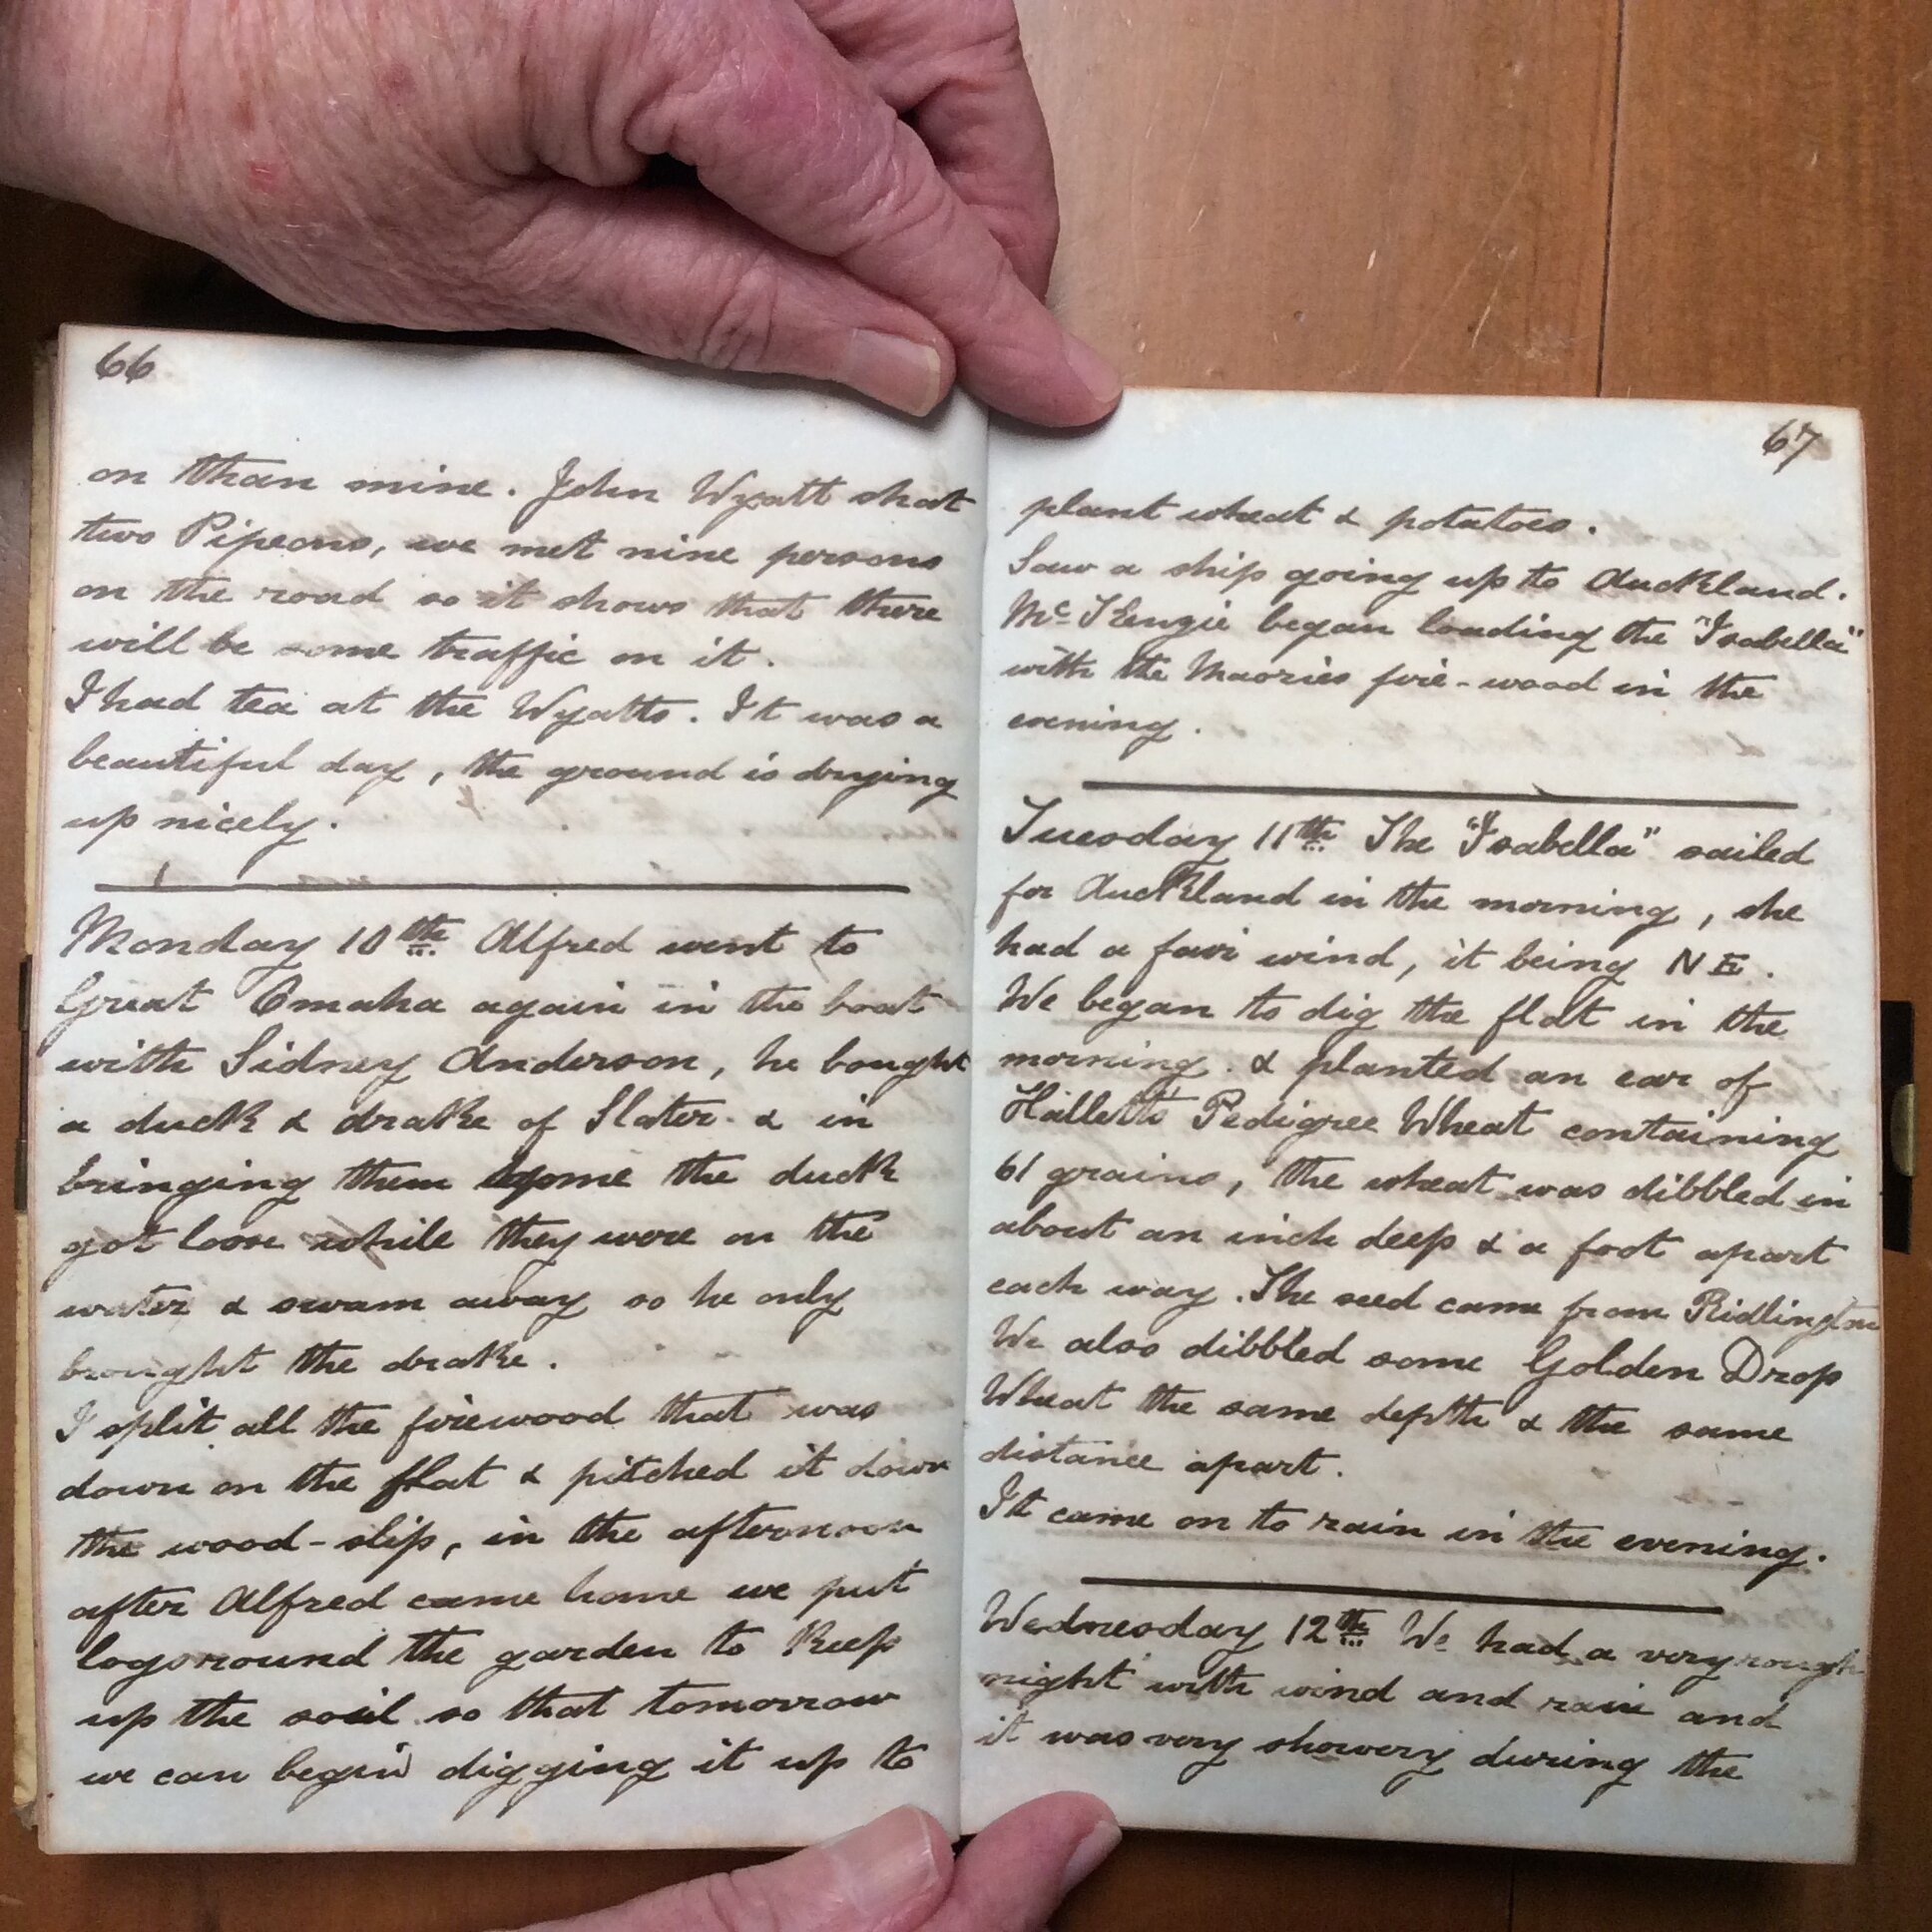 66
on than mine. John Wyatt shot
two Pigeons, we met nine persons
on the road so it shows that there
will be some traffic on it.
I had tea at the Wyatts. It was a
beautiful day, the ground is drying
up nicely.
Monday 10th Alfred went to
Great Omaha again in the boat
with Sidney Anderson, he bought
a duck & drake of Slater. & in
bringing them home the duck
got loose while they were on the
water & swam away so he only
brought the drake.
I split all the firewood that was
down on the flat & pitched it down
the wood-slip, in the afternoon
after Alfred came home we put
logs round the garden to keep
up the soil so that tomorrow
we can begin digging it up to
67
plant wheat & potatoes.
Saw a ship going up to Auckland.
McKenzie began loading the "Isabella"
with the Maories fire-wood in the
evening.
Tuesday 11th The "Isabella" sailed
for Auckland in the morning, she
had a fair wind, it being N E.
We began to dig the flat in the
morning. & planted an ear of
Halletts Pedigree Wheat containing
61 grains, the wheat was dibbled in
about an inch deep & a foot apart
each way. The seed came from Ridlington
We also dibbled some Golden Drop
Wheat the same depth & the same
distance apart.
It came on to rain in the evening.
Wednesday 12th We had a very rough
night with wind and rain and
it was very showery during the